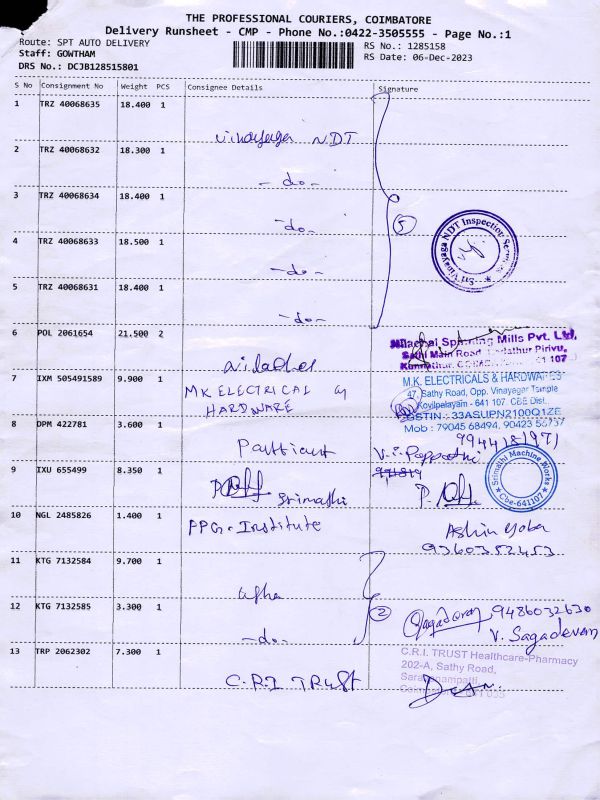 THE PROFESSIONAL COURIERS, COIMBATORE
Delivery Runsheet - CMP - Phone No.:0422-3505555 - Page No.:1
Route: SPT AUTO DELIVERY
Staff: GOWTHAM
DRS No.: DCJB128515801
RS No.: 1285158
RS Date: 06-Dec-2023
S No Consignment No Weight PCS Consignee Details Signature
1 TRZ 40068635 18.400 1 Vinayaga NDT
2 TRZ 40068632 18.300 1 -do-
3 TRZ 40068634 18.400 1 -do-
5
Sri Vinayaga NDT Inspection Services
4 TRZ 40068633 18.500 1 -do-
5 TRZ 40068631 18.400 1 -do-
6 POL 2061654 21.500 2
Spinning Mills Pvt. Ltd.
Sathi Main Road, Pirivu,
641 107
7 IXM 505491589 9.900 1 MK ELECTRICAL
HARDWARE
M.K. ELECTRICALS & HARDWARES
47, Sathy Road, Opp. Vinayagar Temple
Kovilpalayam - 641 107. CBE Dist.
GSTIN : 33ASUPN2100Q1ZE
Mob : 79045 68494, 90423 56737
8 DPM 422781 3.600 1
9 IXU 655499 8.350 1 Srimathi
Srimathi Machine Works
Cbe-641107
10 NGL 2485826 1.400 1 PPG-Institute
9360352453
11 KTG 7132584 9.700 1
12 KTG 7132585 3.300 1 -do-
2
9486032630
V. Sagadevan
13 TRP 2062302 7.300 1 C.R.I TRUST
C.R.I. TRUST Healthcare-Pharmacy
202-A, Sathy Road,